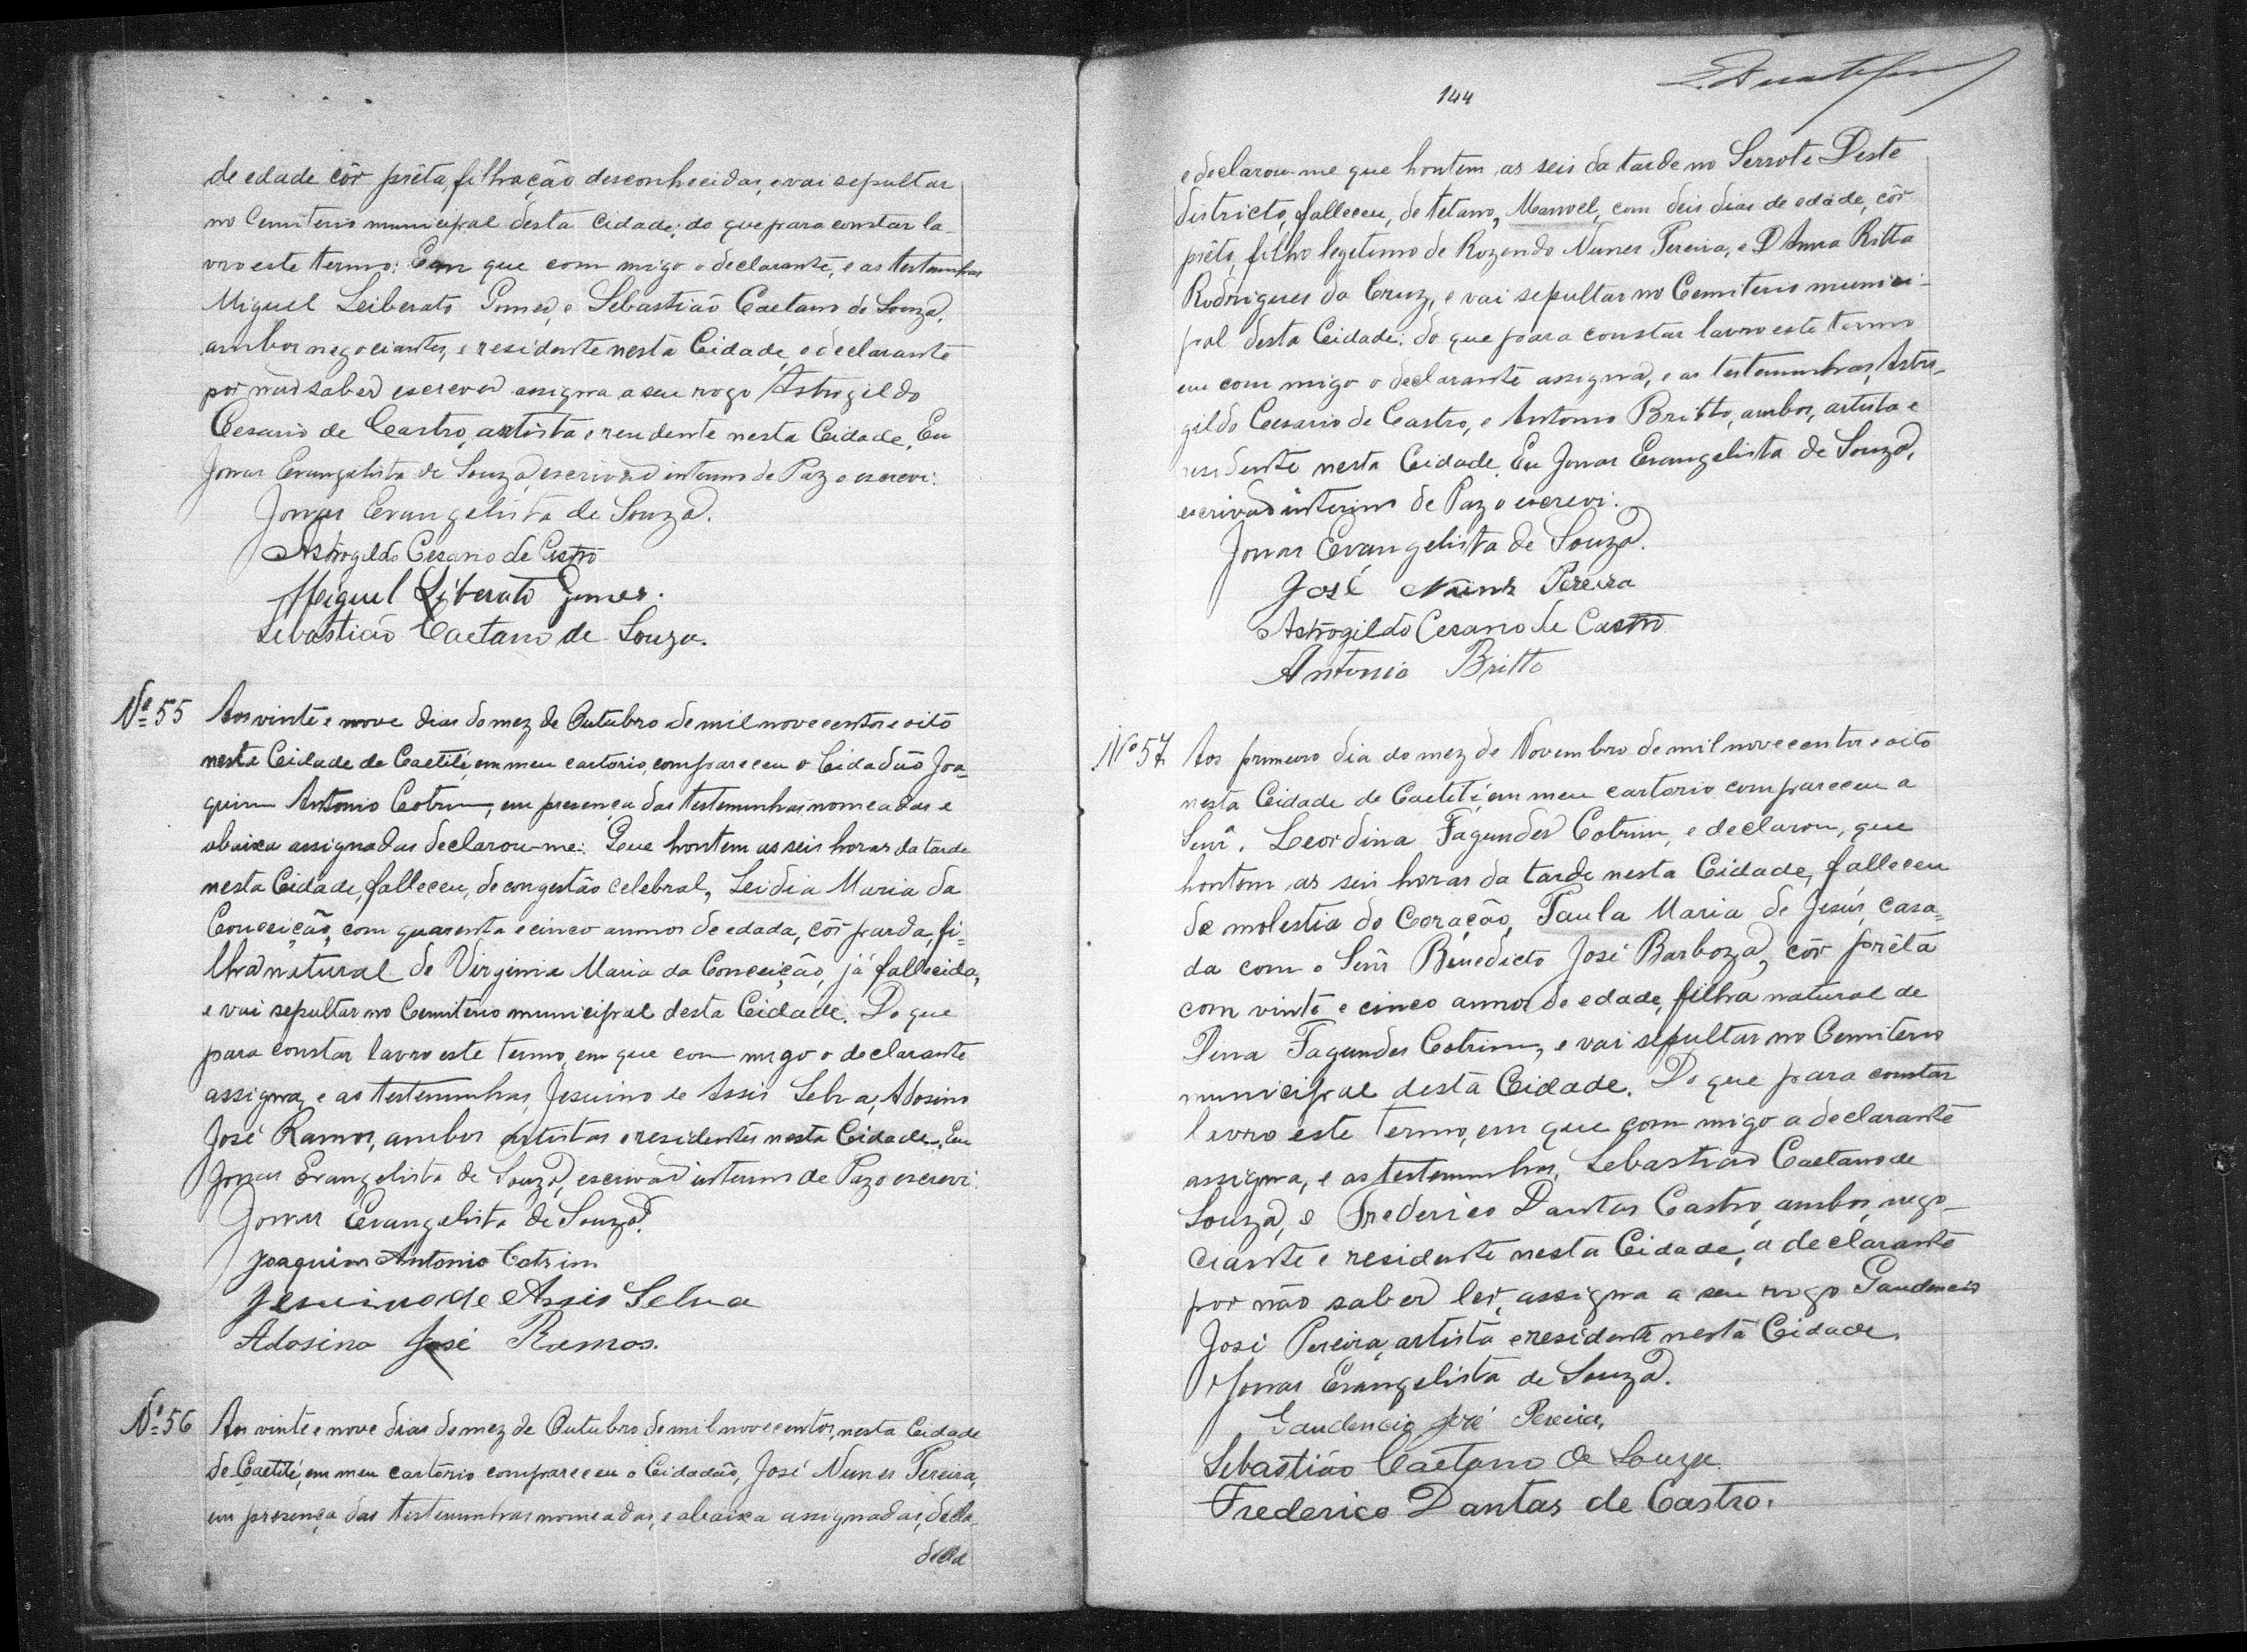 de edade côr prêta, filhação desconhecidas, e vai sepultar
no Cemiterio municipal desta Cidade; do que para constar la-
vro este termo: Em que com migo o declarante, e as testemunhas
Miguel Leiberato Gomes, e Sebastião Caetano de Souza,
ambos negociantes, e residente nesta Cidade, o declarante
por não saber escrever assigna a seu rogo Astrogildo
Cesario de Castro, artista e residente nesta Cidade, Eu
Jonas Evangelista de Souza, escrivão interino de Paz o escrevi:
Jonas Evangelista de Souza.
Astrogildo Cesario de Castro
Miguel Liberato Gomes.
Sebastião Caetano de Souza.
Nº 55 Aos vinte e nove dias do mez de Outubro de mil nove centos e oito
nesta Cidade de Caetité, em meu cartorio, compareceu o Cidadão Joa-
quim Antonio Cotrim, em presença das testemunhas nomeadas e
abaixa assignadas declarou-me: Que hontem as seis horas da tarde
nesta Cidade, falleceu, de congestão celebral, Leidia Maria da
Conceição, com quarenta e cinco annos de edada, côr parda, fi-
lha natural de Virginia Maria da Conceição, já fallecida,
e vai sepultar no Cemiterio municipal desta Cidade. Do que
para constar lavro este termo, em que com migo o declarante
assigna, e as testemunhas, Jesuino de Assis Selva, Adosino
José Ramos, ambos artistas e residentes nesta Cidade. Eu
Jonas Evangelista de Souza, escrivão interino de Paz o escrevi.
Jonas Evangelista de Souza.
Joaquim Antonio Cotrim
Jesuino de Assis Selva
Adosino José Ramos.
Nº 56 Aos vinte e nove dias do mez de Outubro de mil nove centos, nesta Cidade
de Caetité, em meu cartorio compareceu o Cidadão, José Nunes Pereira,
em presença das testemunhas nomeadas, e abaixa assignadas, decla-
decla
144
e declarou-me que hontem as seis da tarde no Serrote Deste
districto, falleceu, de tetano, Manoel, com deis dias de edade, côr
prêto, filho legitimo de Rozendo Nunes Pereira, e D Anna Ritta
Rodrigues da Cruz, e vai sepultar no Cemiterio munici-
pal desta Cidade: do que para constar lavro este termo
em com migo o declarante assigna, e as testemunhas, Astro-
gildo Cesario de Castro, e Antonio Britto, ambos, artista e
residente nesta Cidade. Eu Jonas Evangelista de Souza,
escrivão interino de Paz o escrevi:
Jonas Evangelista de Souza.
José Nunes Pereira
Astrogildo Cesario de Castro
Antonio Britto
Nº 57 Aos primeiro dia do mez de Novembro de mil nove centos e oito
nesta Cidade de Caetité, em meu cartorio compareceu a
Senrª. Leordina Fagundes Cotrim, e declarou, que
hontem as seis horas da tarde nesta Cidade, falleceu
de molestia do Coração, Paula Maria de Jesús, casa-
da com o Senr Binedicto José Barboza, côr prêta
com vinte e cinco annos de edade, filha natural de
Dina Fagundes Cotrim, e vai sepultar no Cemiterio
municipal desta Cidade. Do que para constar
lavro este termo, em que com migo a declarante
assigna, e as testemunhas, Sebastião Caetano de
Souza, e Frederico Dantas Castro, ambos, nego-
ciante e residente nesta Cidade, a declarante
por não saber ler, assigna a seu rogo Gaudencio
José Pereira, artista e residente nesta Cidade.
Jonas Evangelista de Souza.
Gaudencio José Pereira,
Sebastião Caetano de Souza
Frederico Dantas de Castro.